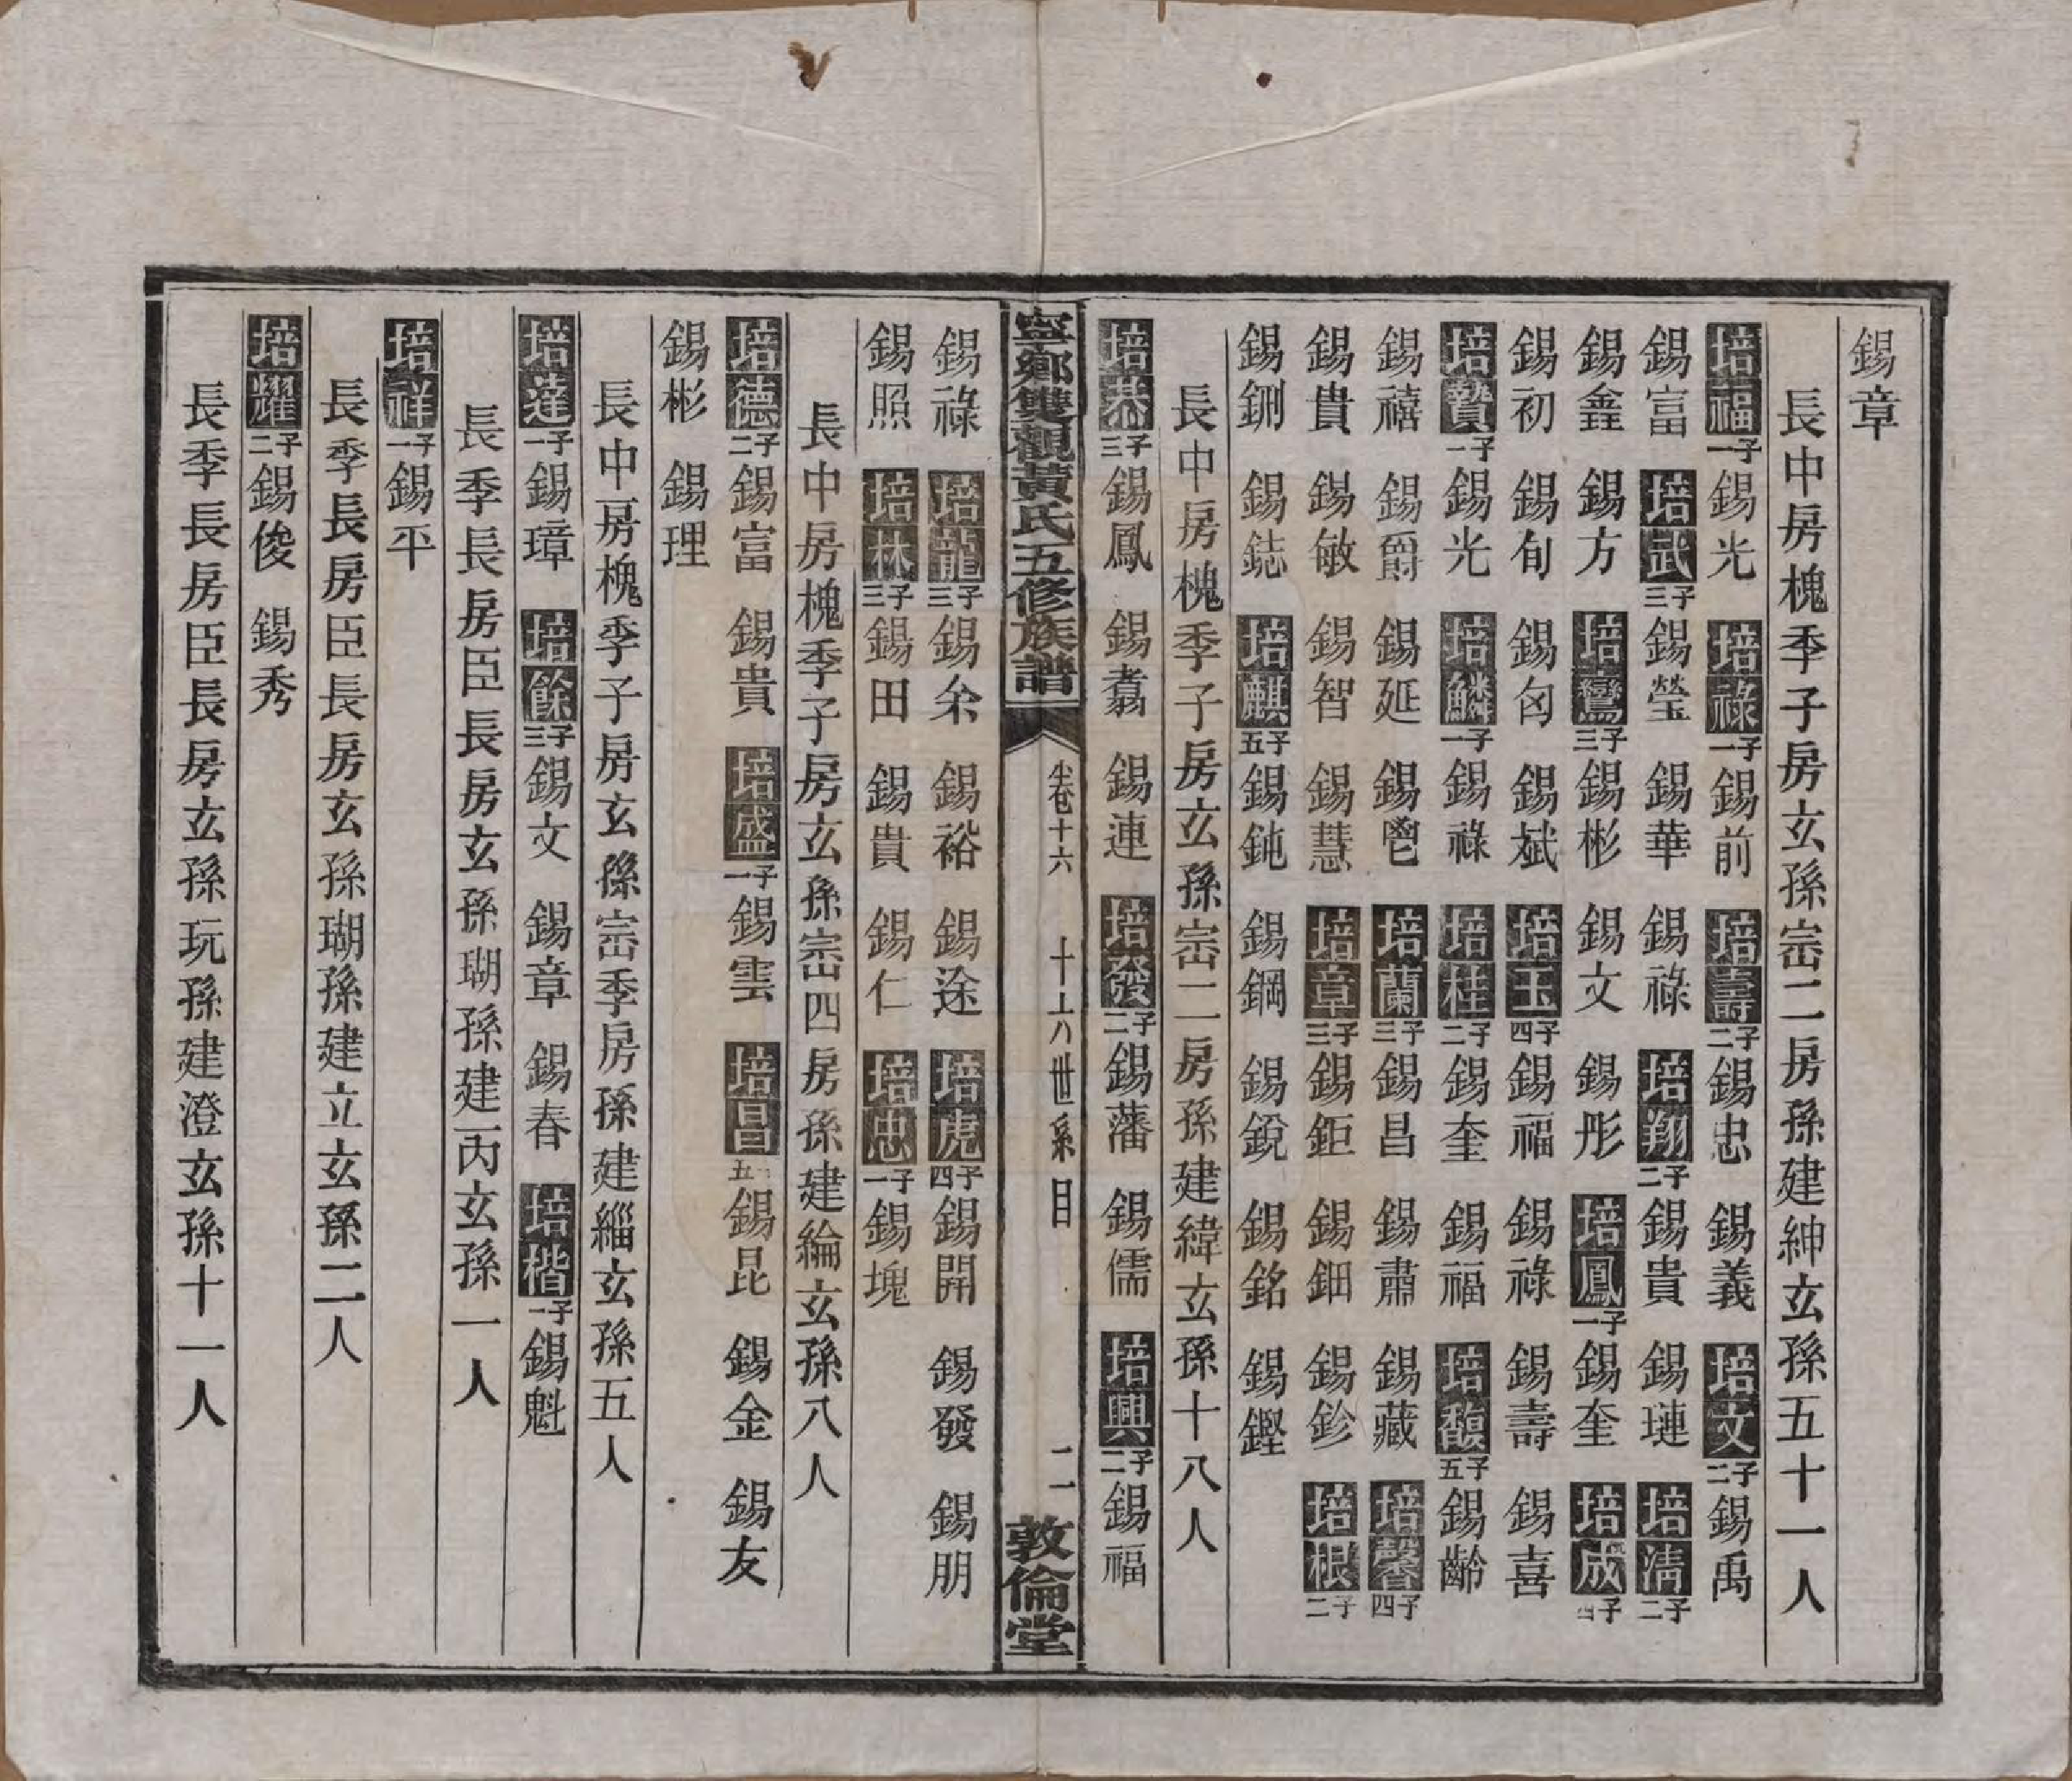 錫章
長中房槐季子房玄孫崈二房孫建紳玄孫五十一人
培福一子錫光 培祿一子錫前 培壽二子錫忠 錫義 培文二子錫禹
錫富 培武三子錫瑩 錫華 錫祿 培翔二子錫貴 錫璉 培清二子
錫鑫 錫方 培鸞三子錫彬 錫文 錫彤 培鳳一子錫奎 培成四子
錫初 錫旬 錫匃 錫斌 培玉四子錫福 錫祿 錫壽 錫喜
培贊一子錫光 培鱗一子錫祿 培桂二子錫奎 錫福 培馥五子錫齡
錫禧 錫爵 錫延 錫鬯 培蘭三子錫昌 錫肅 錫藏 培馨四子
錫貴 錫敏 錫智 錫慧 培章三子錫鉅 錫鈿 錫鉁 培根二子
錫鉶 錫鋕 培麒五子錫鈍 錫鋼 錫銳 錫銘 錫鏗
長中房槐季子房玄孫崈二房孫建緯玄孫十八人
培恭三子錫鳳 錫翥 錫連 培發二子錫藩 錫儒 培興二子錫福
寧鄉雙觀黃氏五修族譜 卷十六 世系目 二 敦倫堂
錫祿 培龍三子錫糸 錫裕 錫途 培虎四子錫開 錫發 錫朋
錫照 培林三子錫田 錫貴 錫仁 培忠一子錫塊
長中房槐季子房玄孫崈四房孫建綸玄孫八人
培德二子錫富 錫貴 培盛一子錫雲 培昌五 錫昆 錫金 錫友
錫彬 錫理
長中房槐季子房玄孫崈季房孫建緇玄孫五人
培達一子錫璋 培餘三子錫文 錫章 錫春 培楷一子錫魁
長季長房臣長房玄孫瑚孫建丙玄孫一人
培祥一子錫平
長季長房臣長房玄孫瑚孫建立玄孫二人
培耀二子錫俊 錫秀
長季長房臣長房玄孫玩孫建澄玄孫十一人